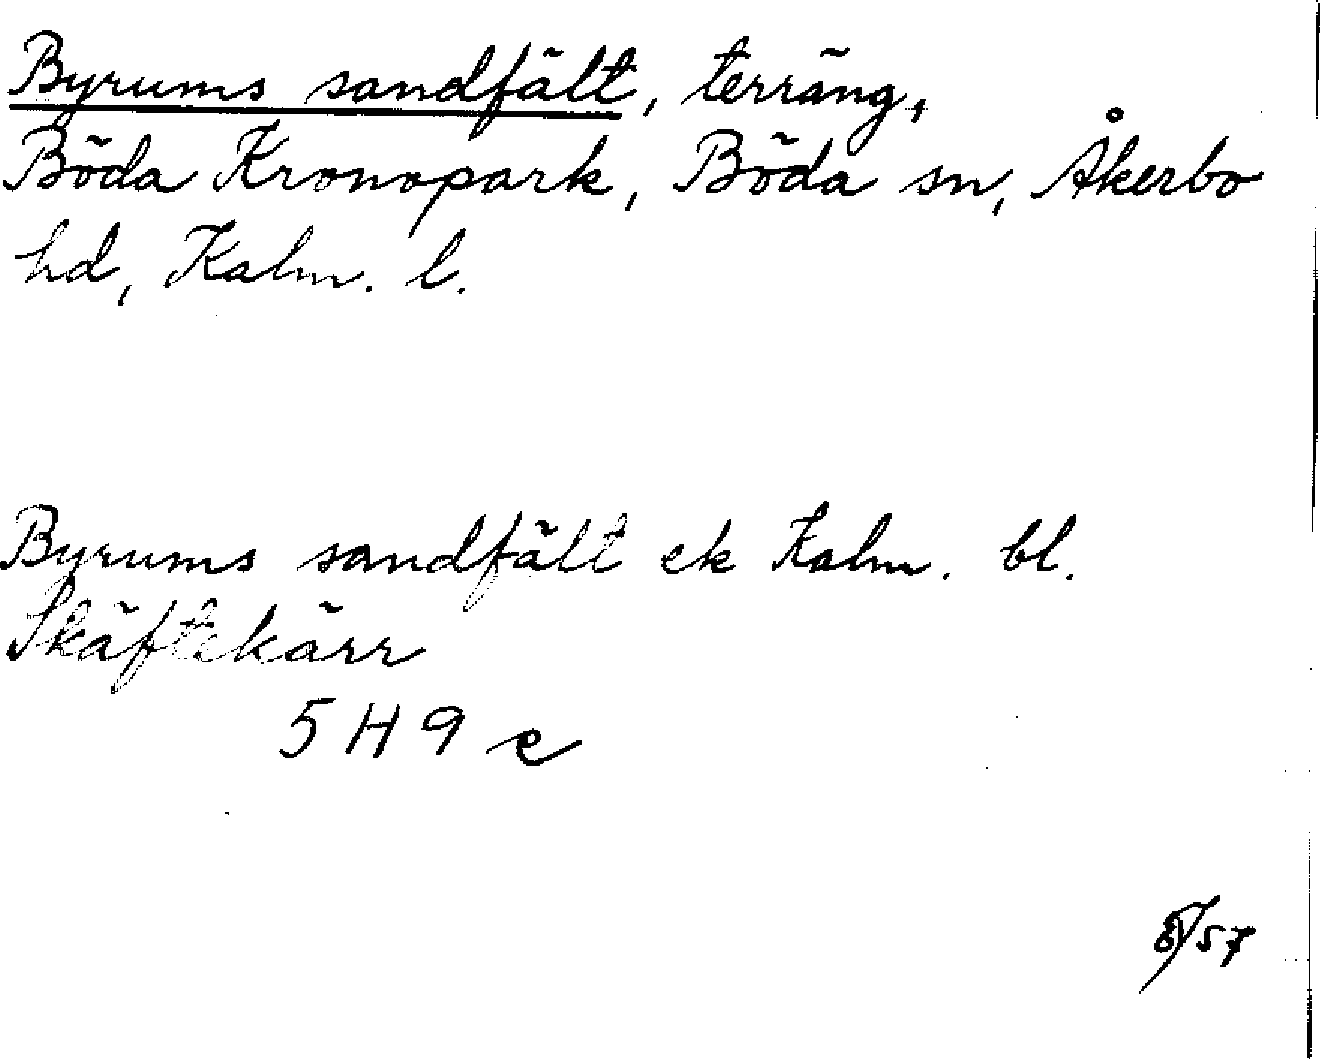 Byrums sandfält, terräng,
Böda Kronopark, Böda sn, Åkerbo
hd, Kalm. l.
Byrums sandfält ek Kalm. bl.
Skäftekärr
5 H 9 e
/57